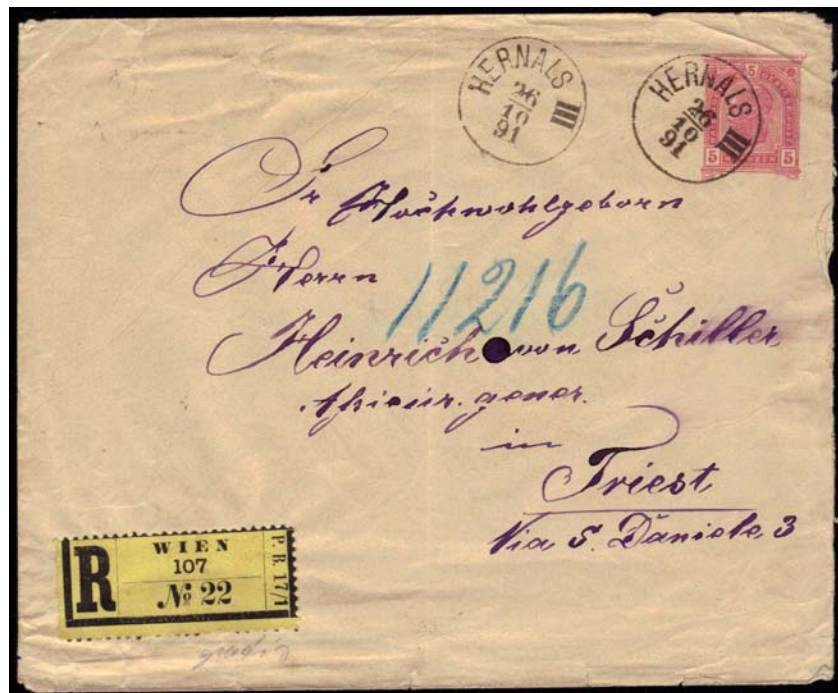 HERNALS
26
10
91
III
HERNALS
26
10
91
III
5
5
5
Sr Hochwohlgeborn
Herrn
11216
Heinrich von Schiller
gener.
in
Triest
Via S. Daniele 3
R
WIEN
107
№ 22
P. B. 17/1